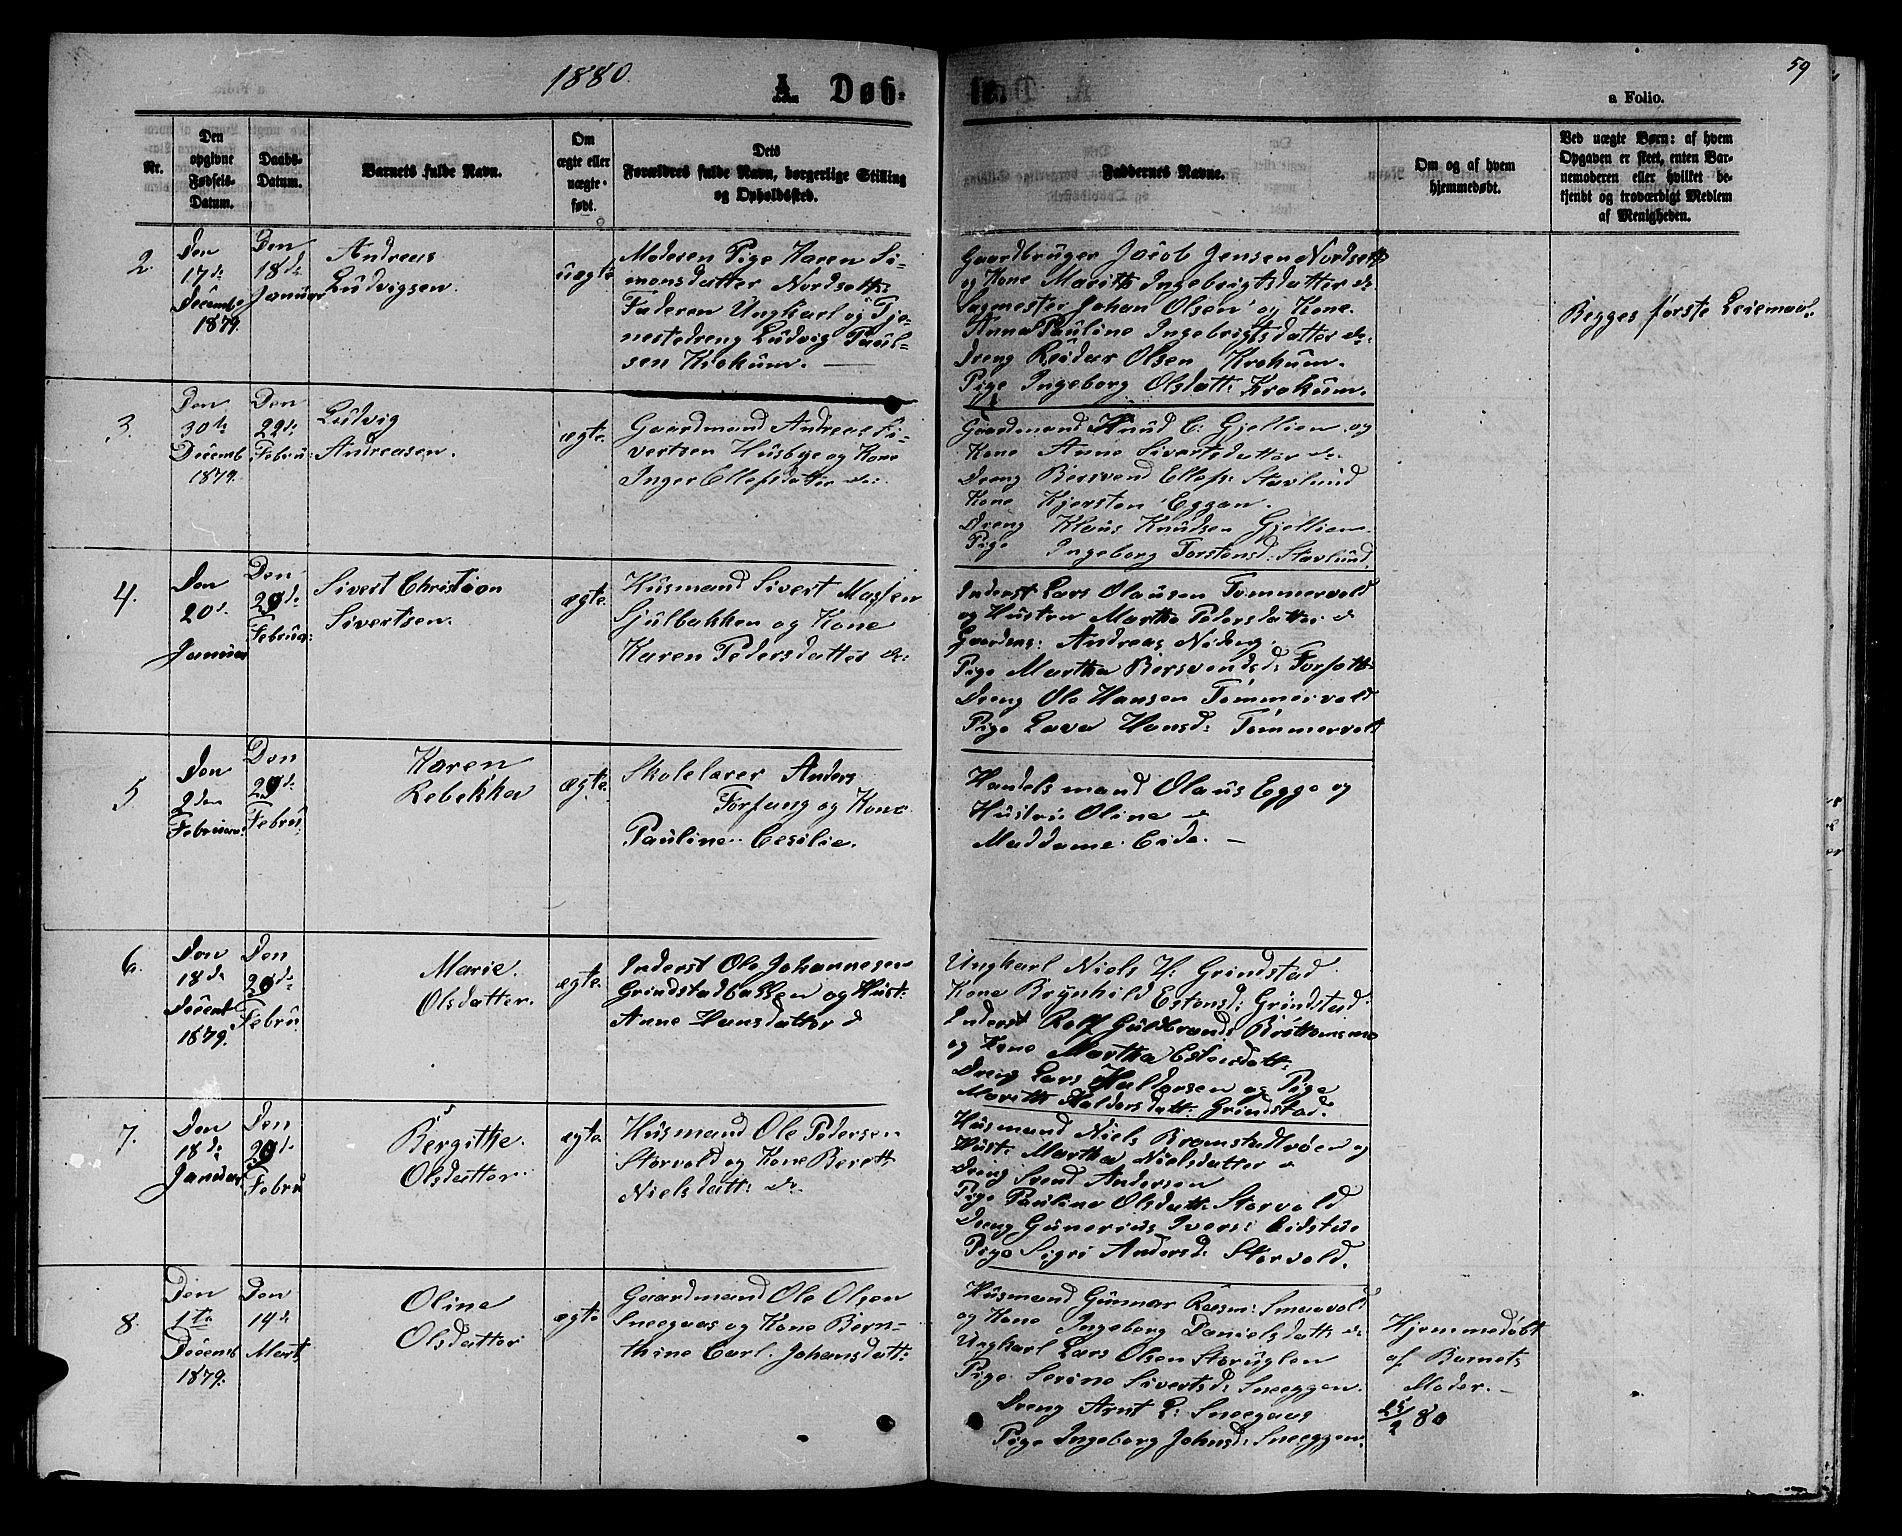 1880.
A. Døb-
te.
59
a Folio.
Nr.
Den
opgivne
Fødsels-
Datum.
Daabs-
Datum.
Barnets fulde Navn.
Om
ægte eller
uægte
født.
Dets
Forældres fulde Navn, borgerlige Stilling
og Opholdssted.
Faddernes Navne.
Om og af hvem
hjemmedøbt.
Ved uægte Børn: af hvem
Opgaven er skeet, enten Bar-
nemoderen eller hvilket be-
kjendt og troværdigt Medlem
af Menigheden.
2.
Den
17de
Decembe
1879.
Den
18de
Januar
Andreas
Ludvigsen.
uægte
Moderen Pige Karen Si-
monsdatter Nordseth
Faderen Ungkarl og Tje-
nestedreng Ludvig Paul-
sen Krokum.
Gaardbruger Jacob Jensen Nordseth
og Kone Marith Ingebrigtsdatter do
Sagmester Johan Olsen og Kone
Anna Pauline Ingebrigtsdatter do.
Dreng Reidar Olsen Krokum.
Pige Ingeborg Olsdatt: Krokum.
Begges første Leiermaal.
3.
Den
30te
Decemb
1879.
Den
22de
Febru:
Ludvig
Andreasen.
ægte.
Gaardmand Andreas Si-
vertsen Husbye og Kone
Inger Ellefsdatter do:
Gaardmand Knud C: Gjellien og
Kone Anne Sivertsdatter do.
Dreng Bersvend Ellefs: Stavlund
Kone Kjersten Eggan.
Dreng Klaus Knudsen Gjellien
Pige Ingeborg Torstensd: Stavlund.
4.
Den
20d.
Januar
Den
29de
Februa:
Sivert Christian
Sivertsen.
ægte.
Husmand Sivert Massen
Sjulbakken og Kone
Karen Pedersdatter do:
Inderst Lars Olausen Tømmervold
og Hustru Martha Pedersdatter do
Gaardens: Andreas Niberg.
Pige Martha Bersvendsd: Forseth
Dreng Ole Hansen Tømmervold
Pige Lava Hansd: Tømmervold
5
Den
2den
Februar:
Den
29de
Febru:
Karen
Rebekka
ægte.
Skolelærer Anders
Forfang og Kone
Pauline Cesilie.
Handelsmand Olaus Egge og
Hustru Oline
Maddame Eide.
6.
Den
18de
Decembe
1879.
Den
29de
Febru
Marie.
Olsdatter.
ægte.
Inderst Ole Johannesen
Grindstadballen og Hust:
Anne Hansdatter do
Ungkarl Niels H: Grindstad
Kone Brynhild Estensd: Grindstad
Inderst Rolf Guldbrands: Brøttemsmo
og Kone Martha Estensdatt:
Dreng Lars Haldorsen og Pige
Marith Haldorsdatt: Grindstad.
7.
Den
18de
Januar
Den
29de
Febru
Bergithe.
Olsdatter.
ægte
Husmand Ole Pedersen
Storvold og Kone Bereth
Nielsdatt: do
Husmand Niels Bramstadtrøen og
Hust: Martha Nielsdatter do
Dreng Svend Andersen
Pige Pauline Olsdatt: Storvold
Dreng Gunerius Ivers: Eidstue
Pige Sigri Andersd: Storvold.
8.
Den
1te
Decemb
1879.
Den
14de
Mart.
Oline
Olsdatter
ægte
Gaardmand Ole Olsen
Sneegaas og Kone Bern-
thine Carl. Johansdatt:
Husmand Gunnar Rasm: Smaavold
og Kone Ingeborg Danielsdatt: do
Ungkarl Lars Olsen Storuglen
Pige Serine Sivertsd: Sneeggen.
Dreng Arnt L: Sneegaas
Pige Ingeborg Johnsd: Sneeggen.
Hjemmedøbt
af Barnets
Moder.
25/2 80